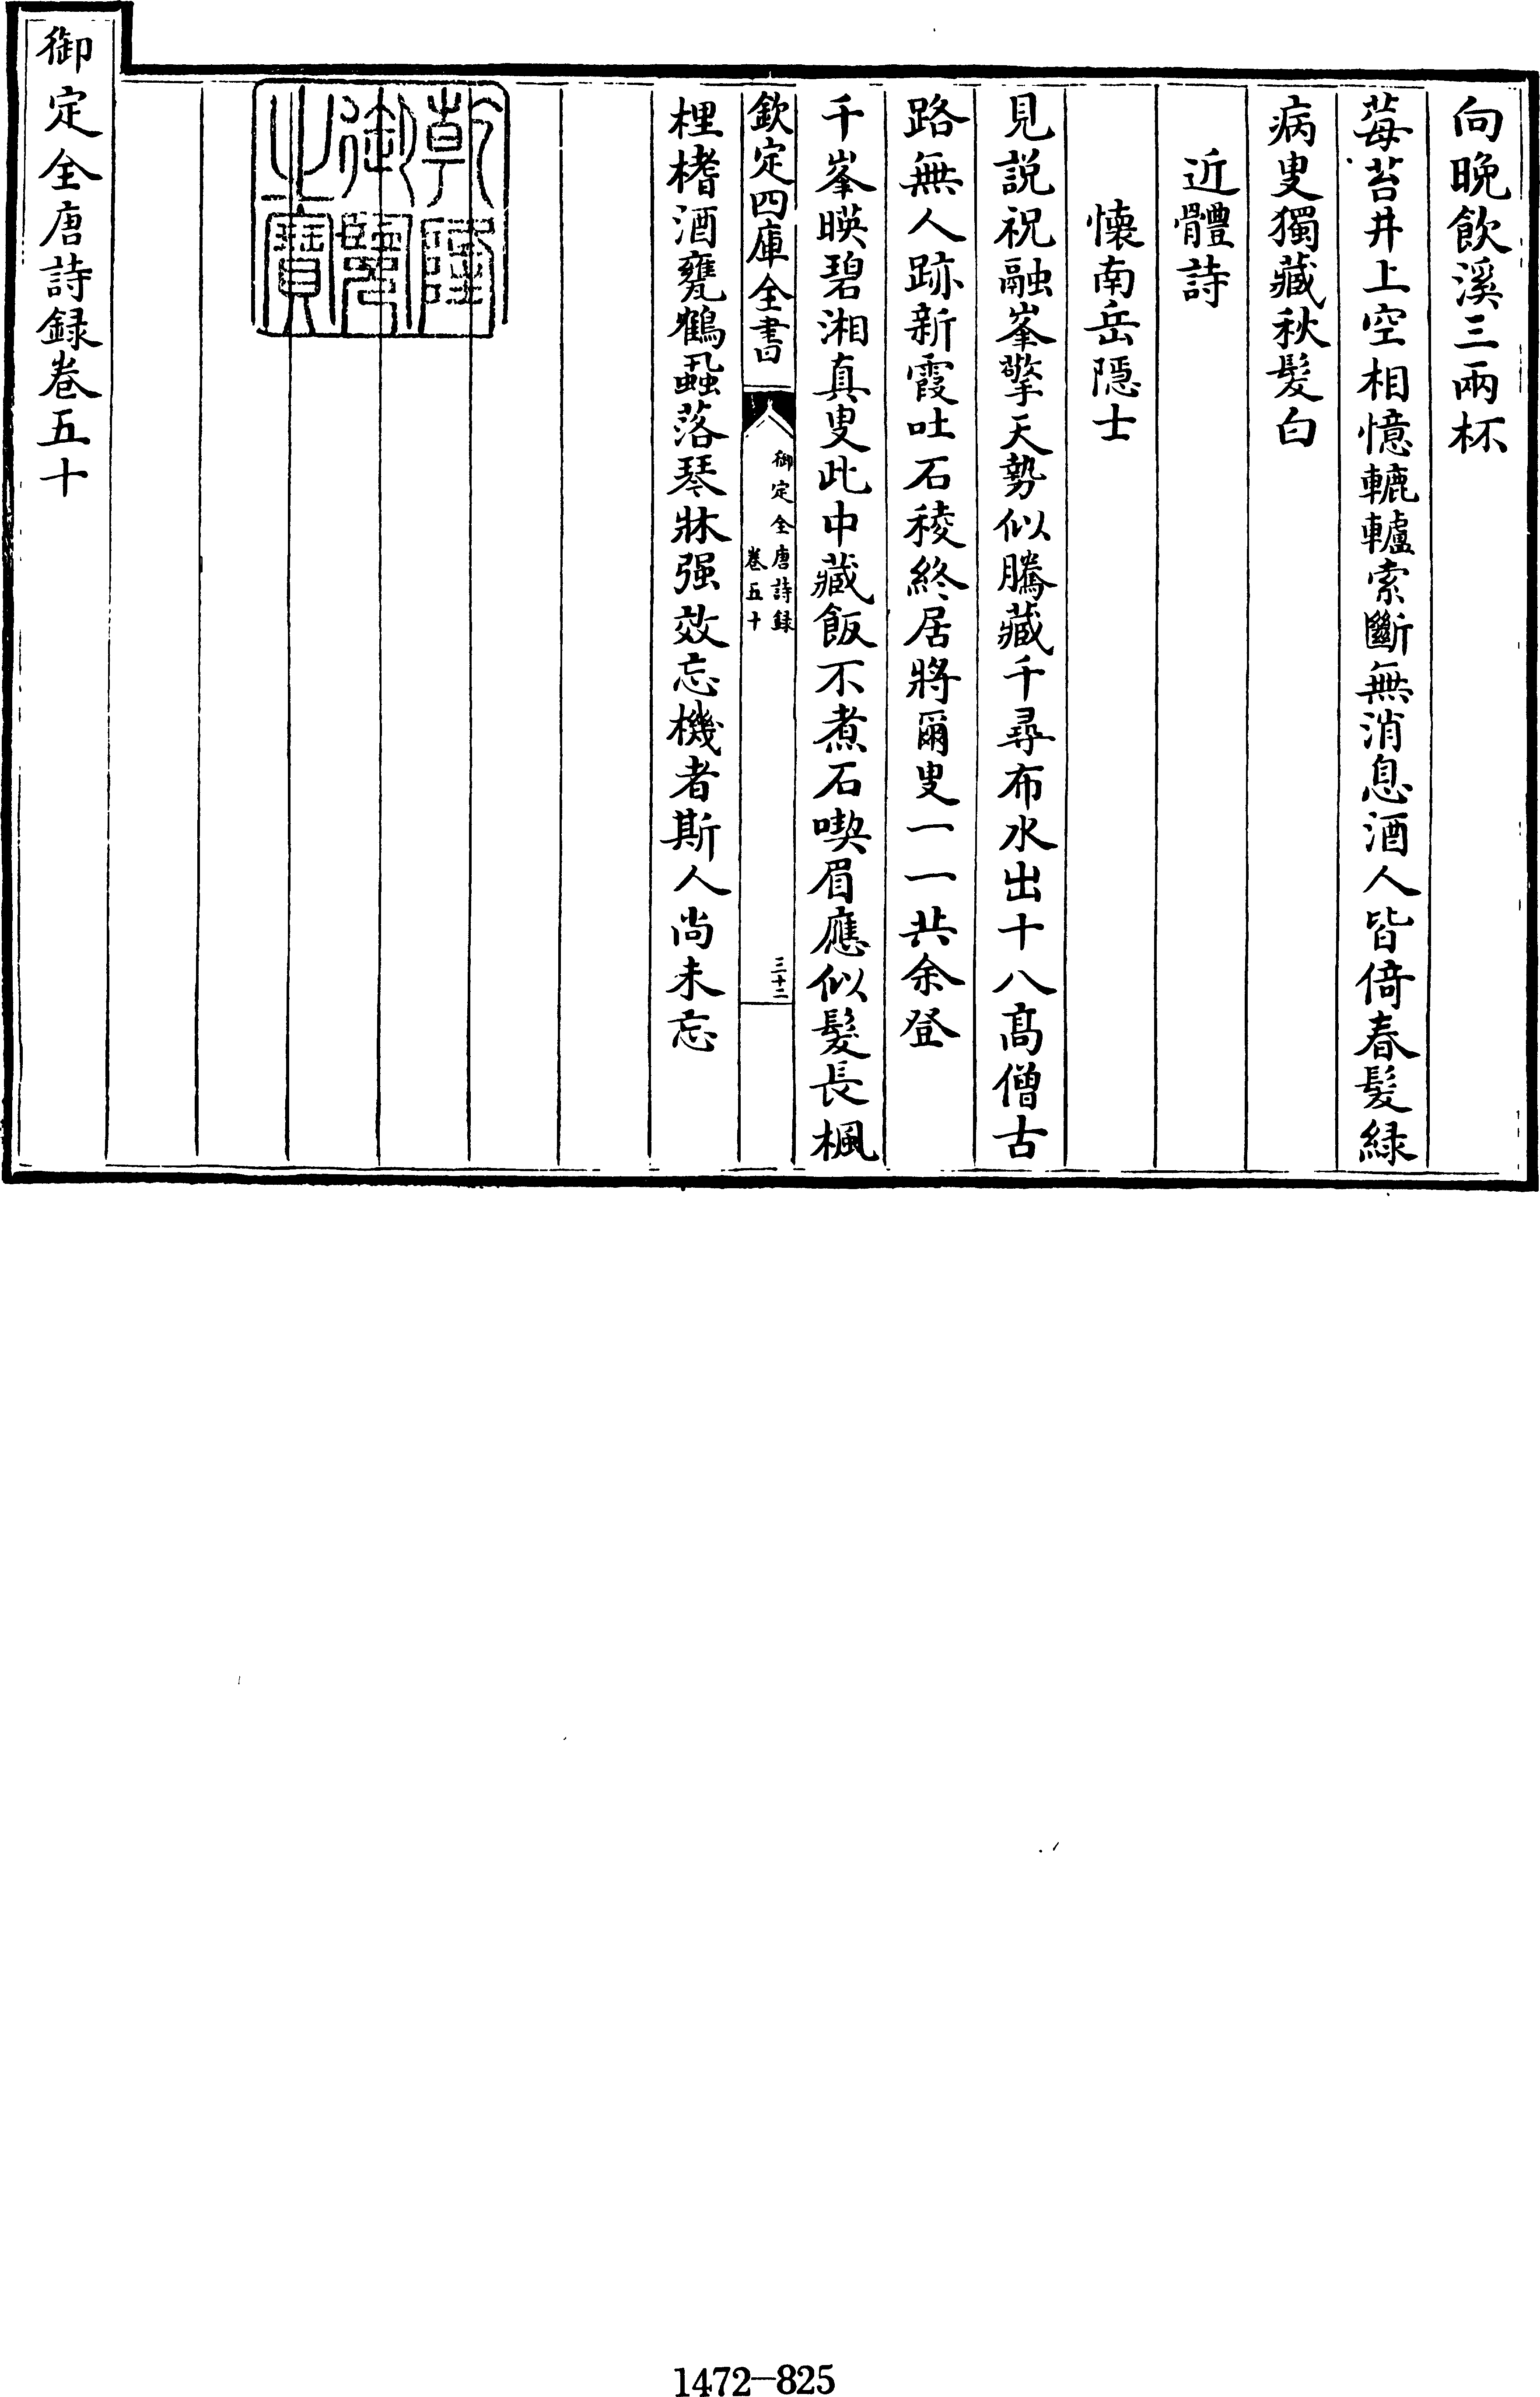 向晚飲溪三兩杯
莓苔井上空相憶轆轤索斷無消息酒人皆倚春髮緑
病叟獨藏秋髮白
近體詩
懐南岳隠士
見説祝融峯擎天勢似騰藏千尋布水出十八髙僧古
路無人跡新霞吐石稜終居將爾叟一一共余登
千峯暎碧湘真叟此中藏飯不煮石喫眉應似髮長楓
欽定四庫全書
御定全唐詩録
卷五十
三十二
梩楮酒甕鶴蝨落琴牀强效忘機者斯人尚未忘
乾隆御覽之寶
御定全唐詩録卷五十
1472—825